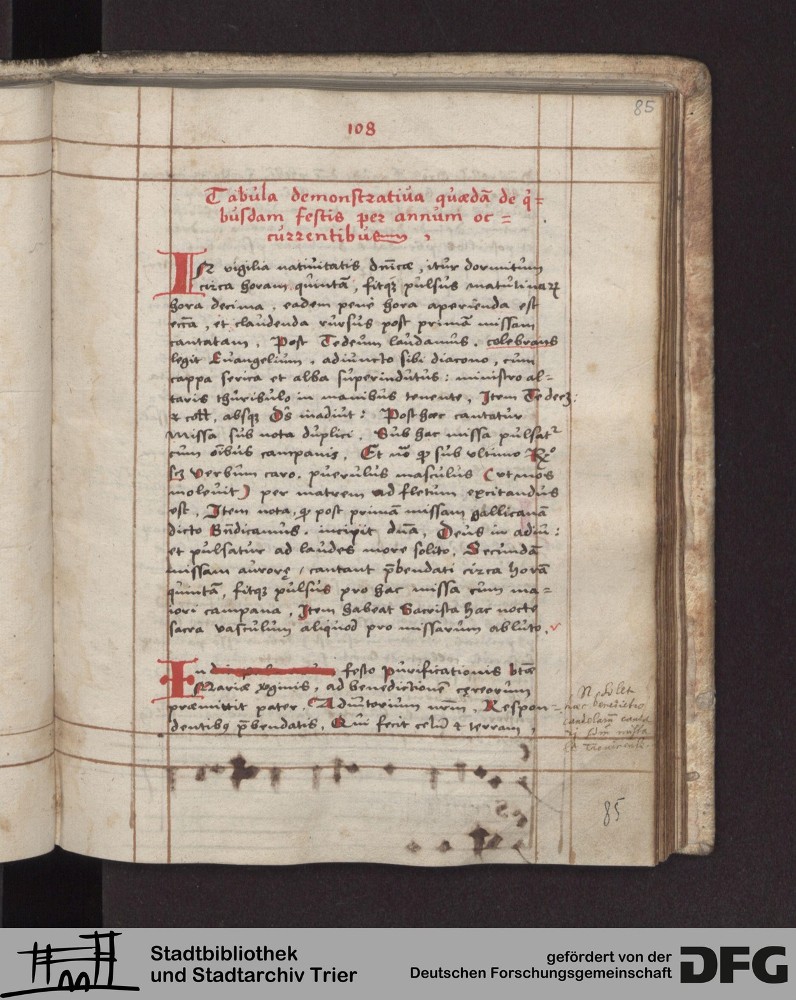 85
108
Tabula demonstratiua quædā de q̇=
busdam festis per annum oc=
currentibus ,
IN vigilia natiuitatis dnicæ, itur dormitum
circa horam quintā, fitqꝫ pulsus matutinarꝝ
hora decima, eadem penè hora aperienda est
eccā, et claudenda rursus post primā missam
cantatam. Post Tedeum laudamus, celebrans
legit Euangelium, adiuncto sibi diacono, cum
cappa serica et alba superindutus: ministro al=
taris thuribulo in manibus tenente, Item Te decꝫ:
et coll, absqꝫ Ds inadiut: Post hæc cantatur
Missa sub nota duplici. Sub hac missa pulsat
cum oībus campanis. Et nō ꝙ sub ultimo R°
scꝫ Verbum caro. puerulus masculus (ut mos
inoleuit) per matrem ad fletum excitandus
est. Item nota, ꝙ post primā missam gallicanā
dicto Bn̄dicamus. incipit dn̄a, Deus in adiu:
et pulsatur ad laudes more solito. Secundā
missam aurorę, cantant p̄bendati circa horā
quintā, fitqꝫ pulsus pro hac missa cum ma=
iori campana, Item habeat Sacrista hac nocte
sacra vasculum aliquod pro missarum abluto.
In festo Purificationis btæ
Mariæ xginis, ad benedictionē cęreorum
præmittit pater, Adiutorium nrm̄, Respon=
dentibꝯ p̄bendatis, Qui fecit celū et terram,
N. solet
hæc benedictio
candelarum canta
ri
missa
85
Stadtbibliothek
und Stadtarchiv Trier
gefördert von der
Deutschen Forschungsgemeinschaft
DFG